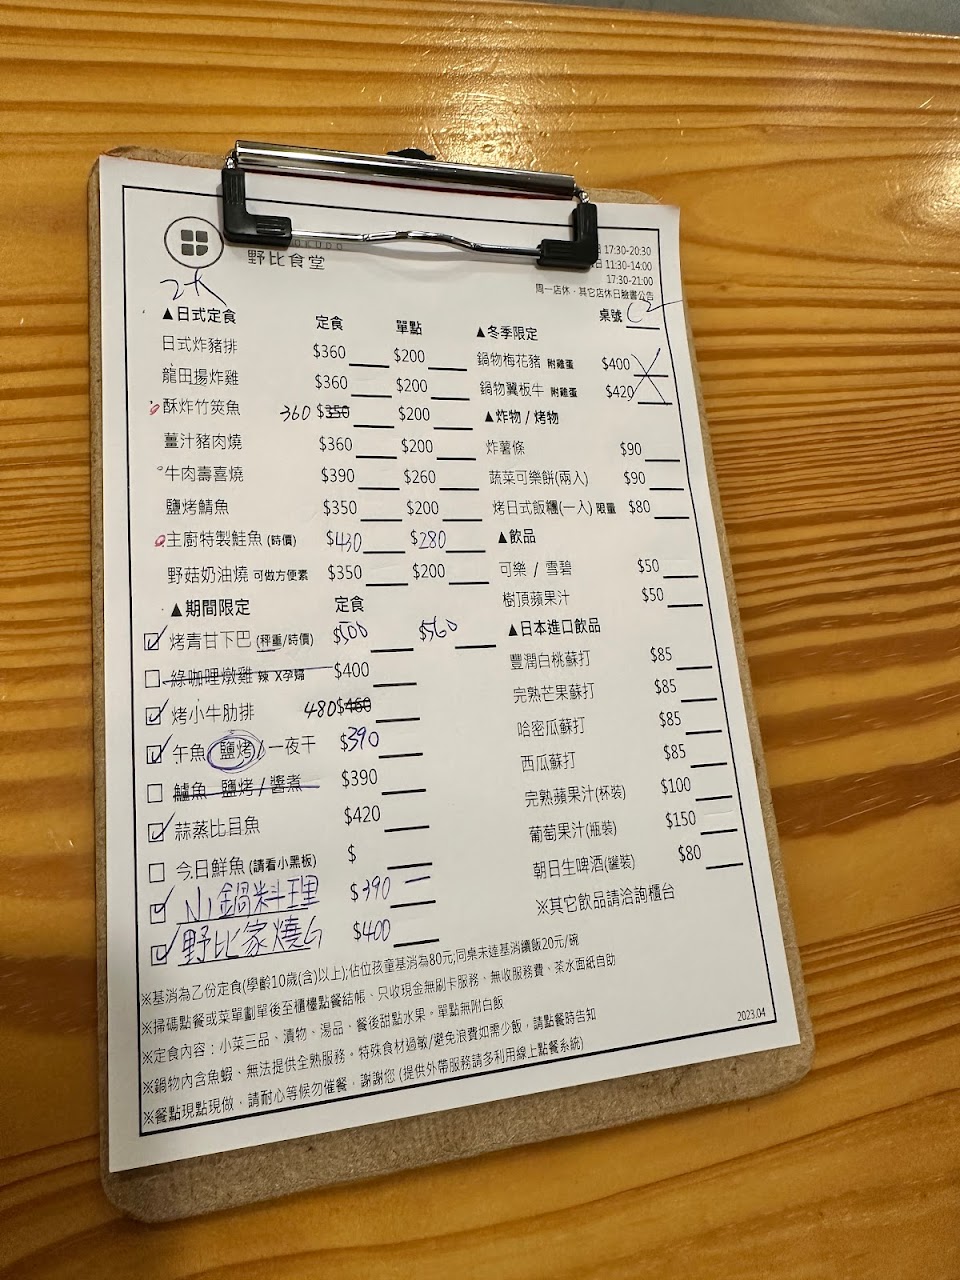 野比食堂
17:30-20:30
日 11:30-14:00
17:30-21:00
周一店休、其它店休日臉書公告
桌號 C2
▲日式定食 定食 單點
日式炸豬排 $360 $200
龍田揚炸雞 $360 $200
酥炸竹筴魚 360 $350 $200
薑汁豬肉燒 $360 $200
牛肉壽喜燒 $390 $260
鹽烤鯖魚 $350 $200
主廚特製鮭魚 (時價) $430 $280
野菇奶油燒 可做方便素 $350 $200
▲期間限定 定食
烤青甘下巴 (秤重/時價) $500 $560
綠咖哩燉雞 辣 X孕婦 $400
烤小牛肋排 480 $460
午魚 鹽烤/一夜干 $390
鱸魚 鹽烤/醬煮 $390
蒜蒸比目魚 $420
今日鮮魚 (請看小黑板) $
小鍋料理 $390
野比家燒 $400
▲冬季限定
鍋物梅花豬 附雞蛋 $400
鍋物翼板牛 附雞蛋 $420
▲炸物 / 烤物
炸薯條 $90
蔬菜可樂餅(兩入) $90
烤日式飯糰(一入) 限量 $80
▲飲品
可樂 / 雪碧 $50
樹頂蘋果汁 $50
▲日本進口飲品
豐潤白桃蘇打 $85
完熟芒果蘇打 $85
哈密瓜蘇打 $85
西瓜蘇打 $85
完熟蘋果汁(杯裝) $100
葡萄果汁(瓶裝) $150
朝日生啤酒(罐裝) $80
※其它飲品請洽詢櫃台
※基消為乙份定食(學齡10歲(含)以上);佔位孩童基消為80元,同桌未達基消續飯20元/碗
※掃碼點餐或菜單劃單後至櫃檯點餐結帳、只收現金無刷卡服務、無收服務費、茶水面紙自助
※定食內容：小菜三品、漬物、湯品、餐後甜點水果。單點無附白飯
※鍋物內含魚蝦、無法提供全熟服務。特殊食材過敏/避免浪費如需少飯，請點餐時告知
※餐點現點現做，請耐心等候勿催餐，謝謝您 (提供外帶服務請多利用線上點餐系統)
2023.04